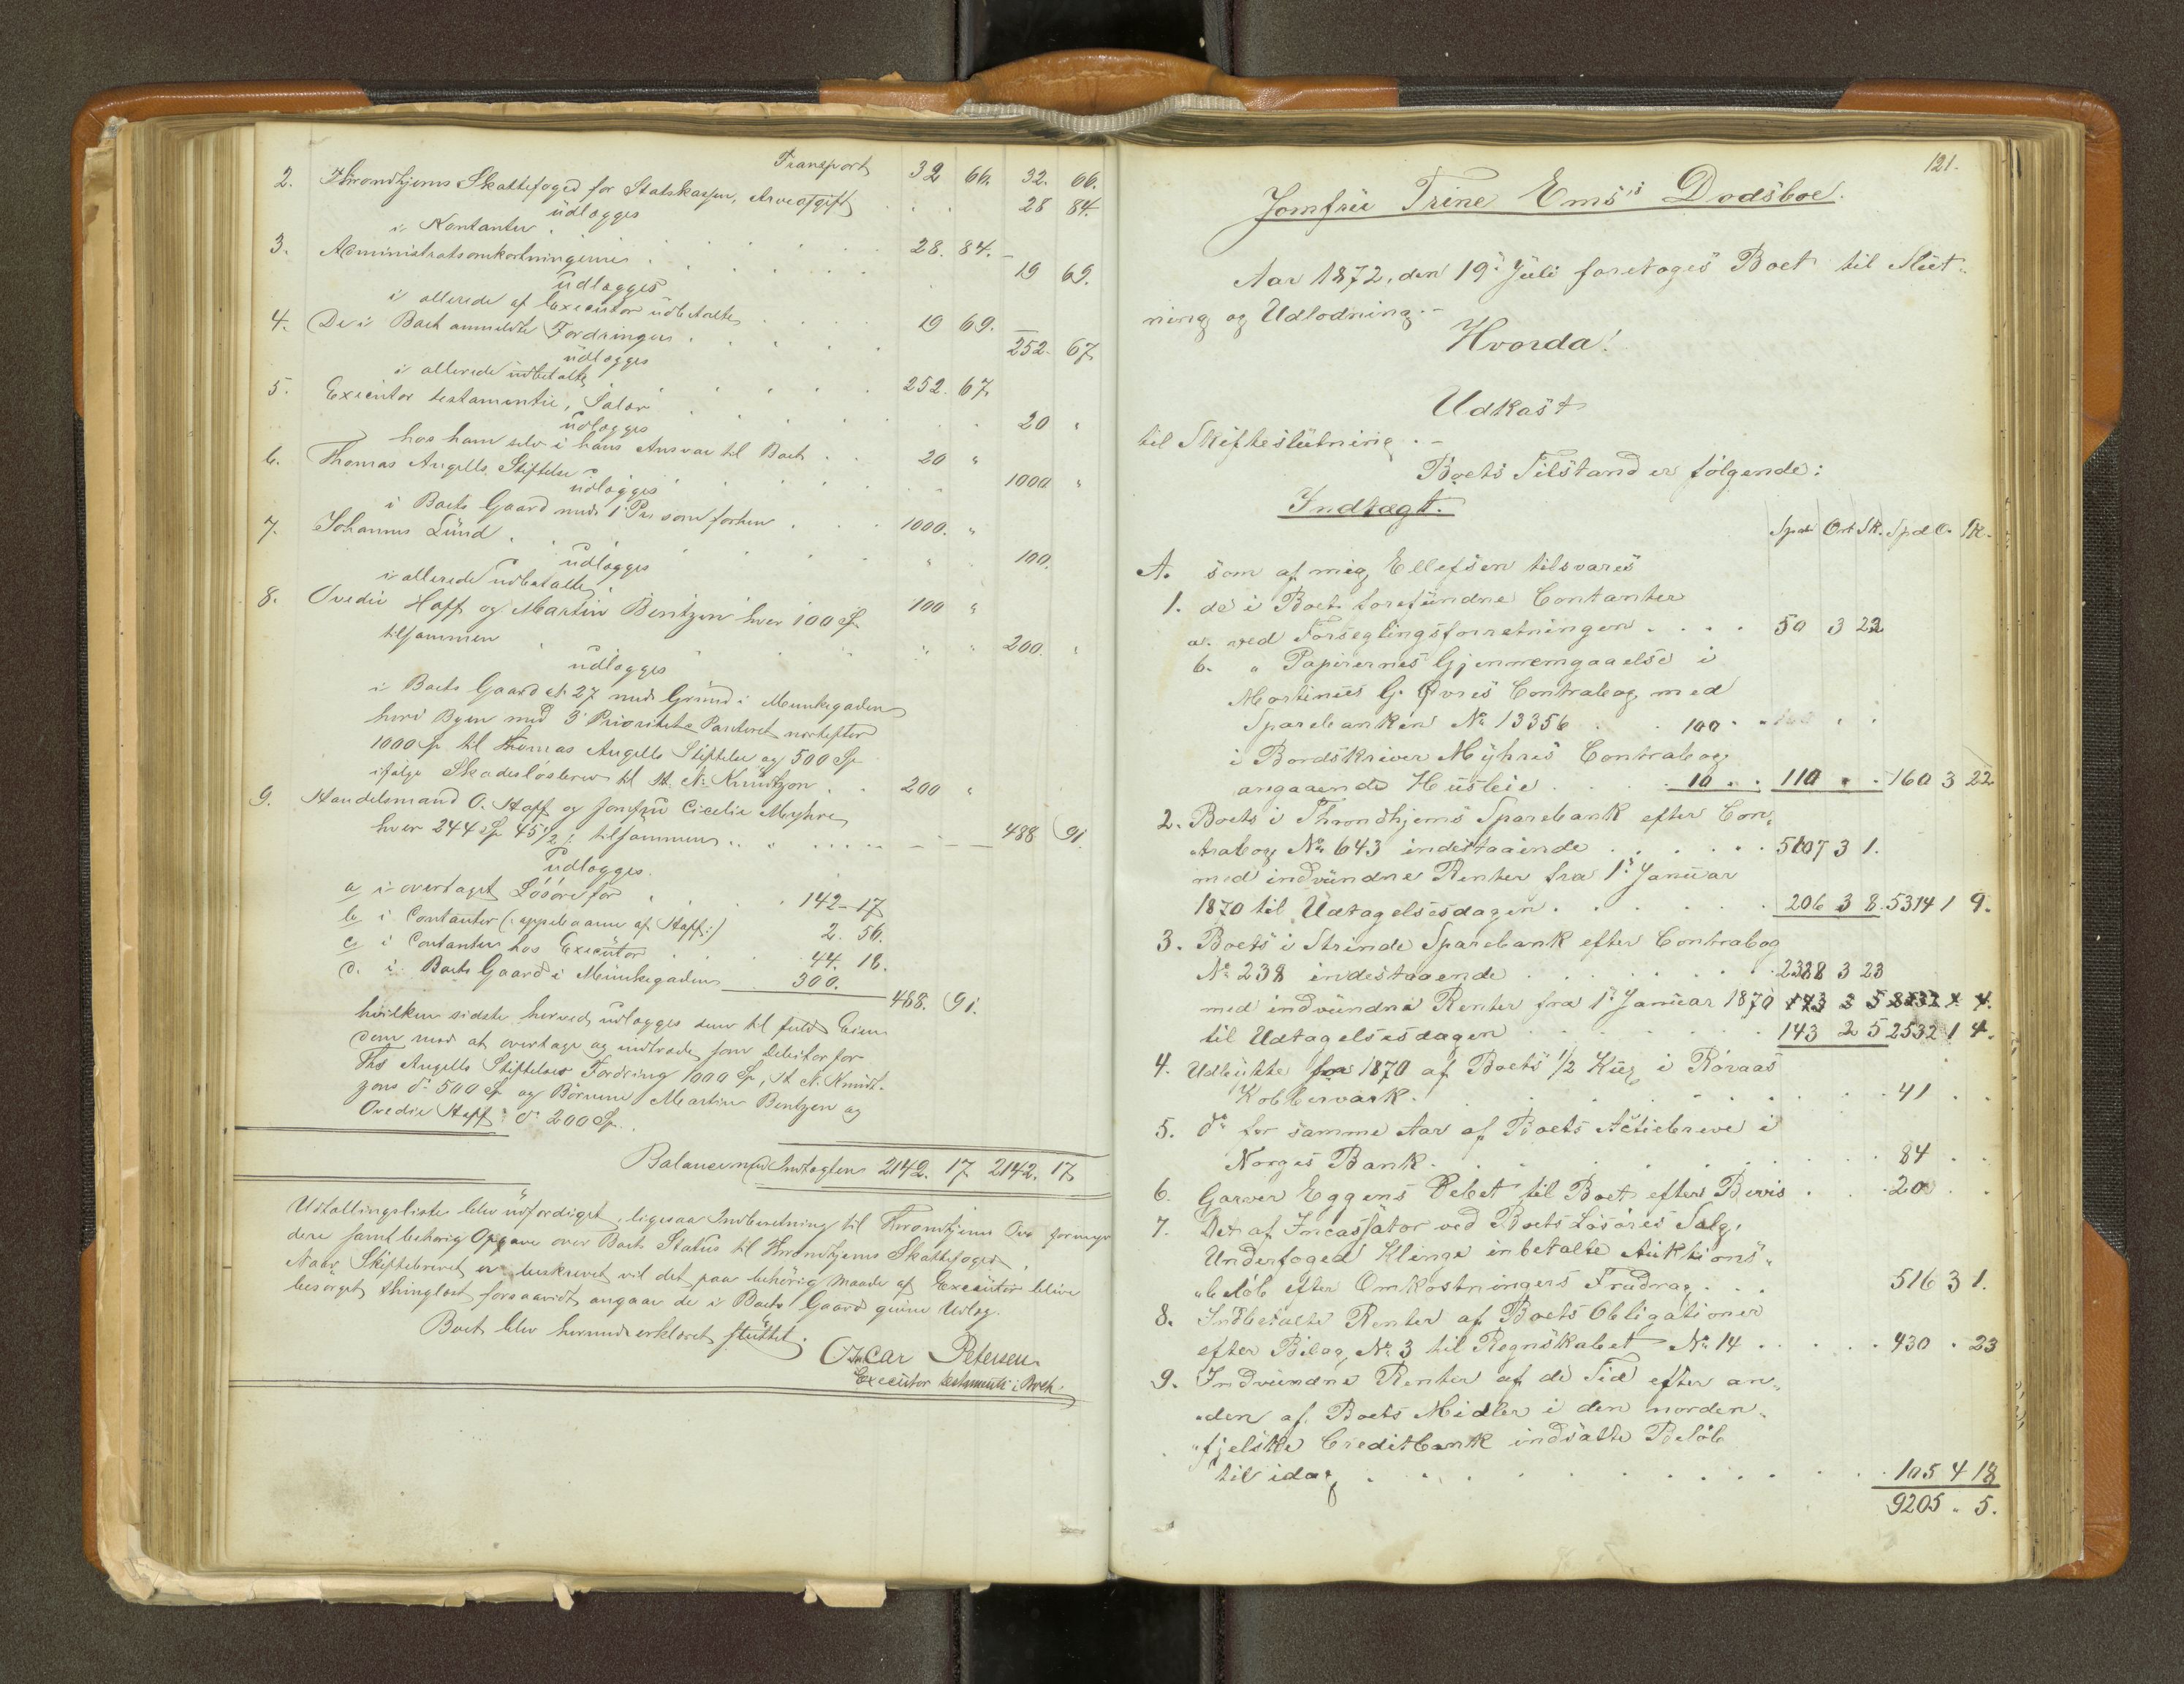 Transport 32 66. 32. 66.
2. Throndhjems Skattefoged for Statskassen, Arveafgift . . . 28 84.
udlægges
i Kontanter . . . 28. 84. –
3. Administrationsomkostningerne . . . 19 69.
udlægges
i allerede af Executor udbetalte . . . 19 69. –
4. De i Boet anmeldte Fordringer . . . 252. 67
udlægges
i allerede udbetalte . . . 252. 67
5. Executor testamentii, Salær . . . 20 "
udlægges
hos ham selv i hans Ansvar til Boet . . 20 "
6. Thomas Angells Stiftelse . . . 1000 "
udlægges
i Boets Gaard med 1' Pr. som forhen . . . 1000. "
7. Johannes Lund . . . 100.
udlægges
i allerede udbetalte . . . 100 "
8. Ovedie Hoff og Martin Bentzen hver 100 Sp
tilsammen . . . 200. "
udlægges
i Boets Gaard No 27 med Grund i Munkegaden
heri Byen med 3' Prioritets Panteret næstefter
1000 Sp til Thomas Angells Stiftelse og 500 Sp
ifølge Skadesløsbrev til H. N. Knudtzon . . 200 "
9. Handelsmand O. Hoff og Jomfru Cicelie Myhre
hver 244 Sp 45 1/2 s tilsammen . . . 488 91.
udlægges.
a i overtaget Løsøre for . . . 142–17
b i Contanter (: oppebaarne af Hoff :) 2. 56.
c i Contanter hos Executor . . . 44. 18.
d. i Boets Gaard i Munkegaden 300. 488. 91.
hvilken sidste herved udlægges dem til fuld Eien-
dom mod at overtage og indtræde som Debitor for
Ths Angells Stiftelses Fordring 1000 Sp, H. N. Knudt-
zons do 500 Sp og Børnene Martin Bentzen og
Ovedie Hoff do 200 Sp.
Balancerer med Indtægten 2142. 17 2142. 17
Udtællingsliste blev udfærdiget, ligesaa Indberetning til Throndhjems Ove formyn
dere samt behørig Opgave over Boets Status til Throndhjems Skattefoged.
Naar Skiftebrevet er beskrevet vil det paa behørig Maade af Executor blive
besørget thinglæst forsaavidt angaar de i Boets Gaard givne Udlæg.
Boet blev herunder erklæret sluttet.
Oscar Petersen
Executor testamenti i Boet.
121.
Jomfru Trine Ems's Dødsboe.
Aar 1872, den 19' Juli foretoges Boet til Slut-
ning og Udlodning.–
Hvorda!
Udkast
til Skifteslutning.–
Boets Tilstand er følgende:
Indtægt.
Spd Ort Sk. Spd O. Sk.
A. som af mig Ellefsen tilsvares
1. de i Boet forefundne Contanter
a. ved Forseglingsforretningen . . . . 50 3 22
b. " Papirernes Gjennemgaaelse i
Martinus G. Øvres Contrabog med
Sparebanken No 13356 . . 100 . .
i Bordskriver Myhres Contrabog
angaaende Husleie . . . 10 . . 110 . . 160 3 22
2. Boets i Throndhjems Sparebank efter Con-
trabog No 643 indestaaende . . . . . 5107 3 1.
med indvundne Renter fra 1' Januar
1870 til Udtagelsesdagen . . . . . 206 3 8. 5314 1 9.
3. Boets i Strinde Sparebank efter Contrabog
No 238 indestaaende . . . . . . 2388 3 23
med indvundne Renter fra 1' Januar 1870
til Udtagelsesdagen . . . 143 2 5 2532 1 4.
4. Udbytte for 1870 af Boets 1/2 Kux i Røraas
Kobberværk . . . . . . . 41 . .
5. do for samme Aar af Boets Actiebreve i
Norges Bank . . . . . . 84 . .
6. Garver Eggens Debet til Boet efter Bevis . . . 20 . .
7. Det af Incassator ved Boets Løsøres Salg,
Underfoged Klinge inbetalte Auktions-
beløb efter Omkostningers Fradrag . . . 516 3 1.
8. Indbetalte Renter af Boets Obligationer
efter Bilag No 3 til Regnskabet No 14 . . . . 430 . 23
9. Indvundne Renter af de Tid efter an-
den af Boets Midler i den norden-
fjelske Creditbank indsatte Beløb
til idag . . . . . . . 105 4 18
9205 . 5.